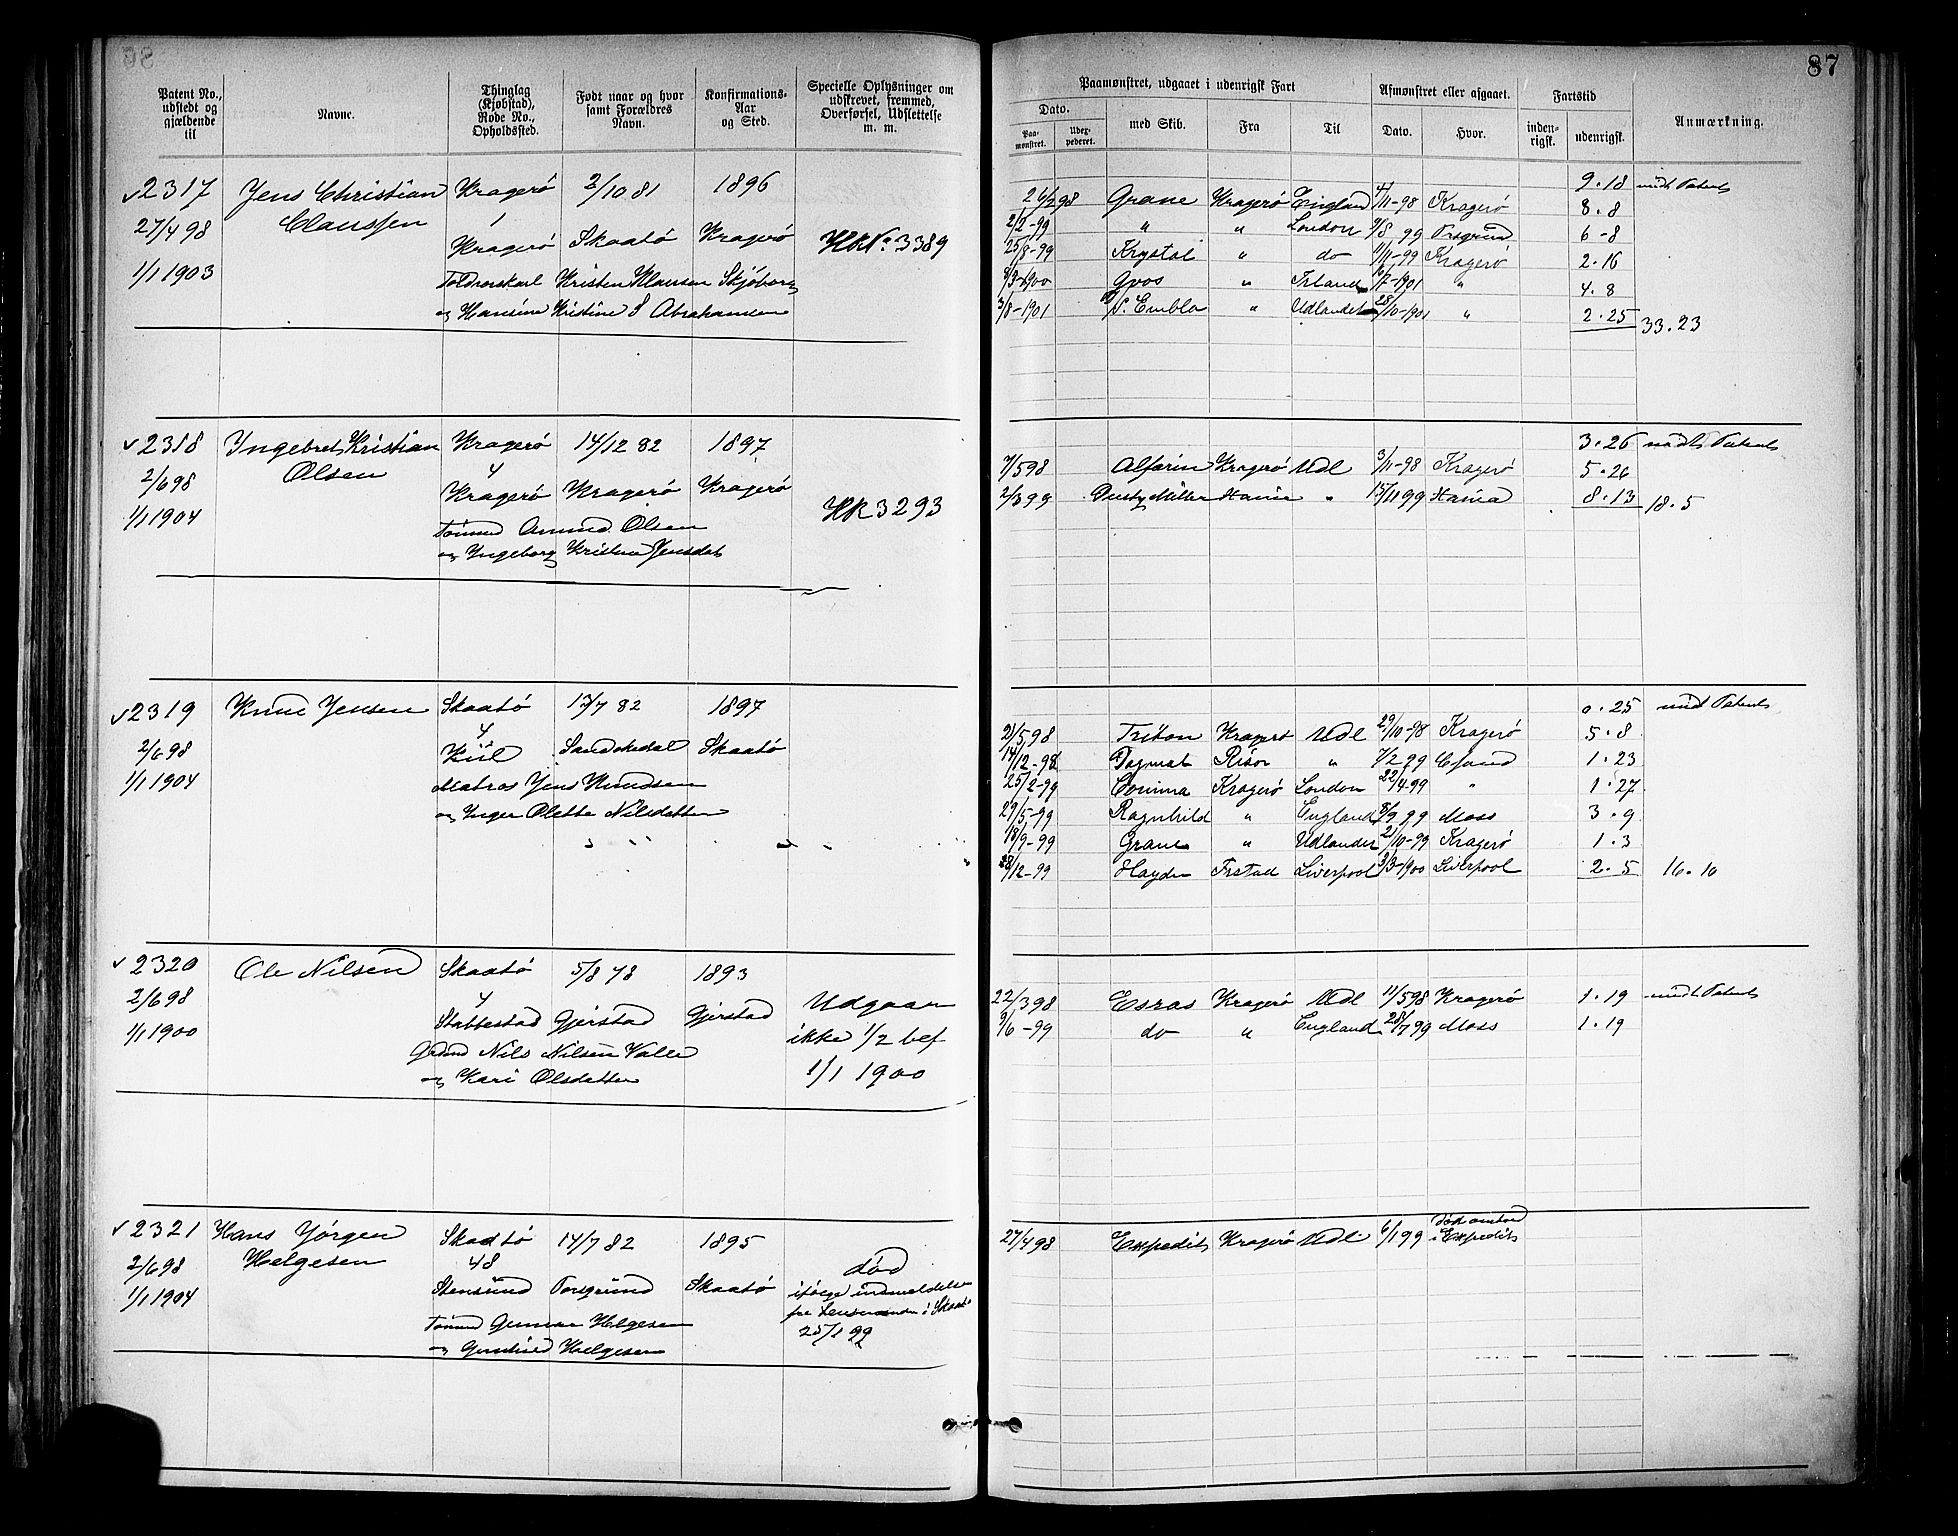 87
Patent No., udstedt og gjældende til
Navne.
Thinglag (Kjøbstad), Rode No., Opholdssted.
Født naar og hvor samt Forældres Navn.
Konfirmations-Aar og Sted.
Specielle Oplysninger om udskrevet, fremmed, Overførsel, Udslettelse m. m.
Paamønstret, udgaaet i udenrigsk Fart
Dato.
Paa-mønstret.
Udex-pederet.
med Skib.
Fra
Til
Afmønstret eller afgaaet.
Dato.
Hvor.
Fartstid
inden-rigsk.
udenrigsk.
Anmærkning.
2317 Jens Christian Kragerö 2/10 81 1896
27/4 98 Claussen 1
Kragerö Skaatö Kragerö HKNo 3389
1/1 1903 Toldrorskarl Kristen Klausen Skjöberg
og Hansine Kristine Abrahamsen
9.18 indt Patent
26/2 98 Grane Kragerö England 4/11-98 Kragerö 8.8
2/2-99 " " London 9/8 99 Prsgrund 6-8
25/8-99 Krystal " do 1/11-99 Kragerö 2.16
8/3-1900 Gvos " Irland 6/7-1901 " 4.8
3/8-1901 S. Embla " Udlandet 28/10-1901 " 2.25 33.23
2318 Ingebret Kristian Kragerö 14/12 82 1897
2/6 98 Olsen 4
Kragerö Kragerö Kragerö
1/1 1904 HK 3293
Tömmd Amund Olsen
og Ingeborg Kristine Jensdat
3.26 indt Patent
7/5 98 Alfarin Kragerö Udl 3/11-98 Kragerö 5.26
2/3 99 Dusty Miller " 15/11 99 8.13 18.5
2319 Knud Jensen Skaatö 13/7 82 1897
4
2/6 98 Kiil Sandökedal Skaatö
1/1 1904 Matros Jens Knudsen
og Inger Olette Nilsdatter
0.25 indt Patent
21/5 98 Triton Kragerö Udl 29/10-98 Kragerö 5.8
14/12-98 Dagmar Risör " 7/2 99 1.23
25/2-99 Corinna Kragerö London 22/4 99 " 1.27
29/5-99 Ragnhild " England 8/9 99 Moss 3.9
18/9-99 Grane " Udlandet 21/10-99 Kragerö 1.3
28/12-99 Haydn Frstad Liverpool 3/3-1900 Liverpool 2.5 16.10
2320 Ole Nilsen Skaatö 5/8 78 1893
2/6 98 4
1/1 1900 Stabbestad Gjerstad Gjerstad
Grdmd Nils Nilsen Valle
og Kari Olsdatter
Udgaar
ikke 1/2 bef
1/1 1900
22/3 98 Esras Kragerö Udl 11/5 98 Kragerö 1.19 indt Patent
9/6-99 do " England 28/7 99 Moss 1.19
2321 Hans Jörgen Skaatö 14/7 82 1895
2/6 98 Helgesen 48
1/1 1904 Stensund Porsgrund Skaatö
Tömmd Gunnar Helgesen
og Gunhild Helgesen
död
ifölge indmeldelse
fra Lensmanden i Skaatö
25/1 99
27/4 98 Expedit Kragerö Udl 6/1 99 död ombord i Expedit